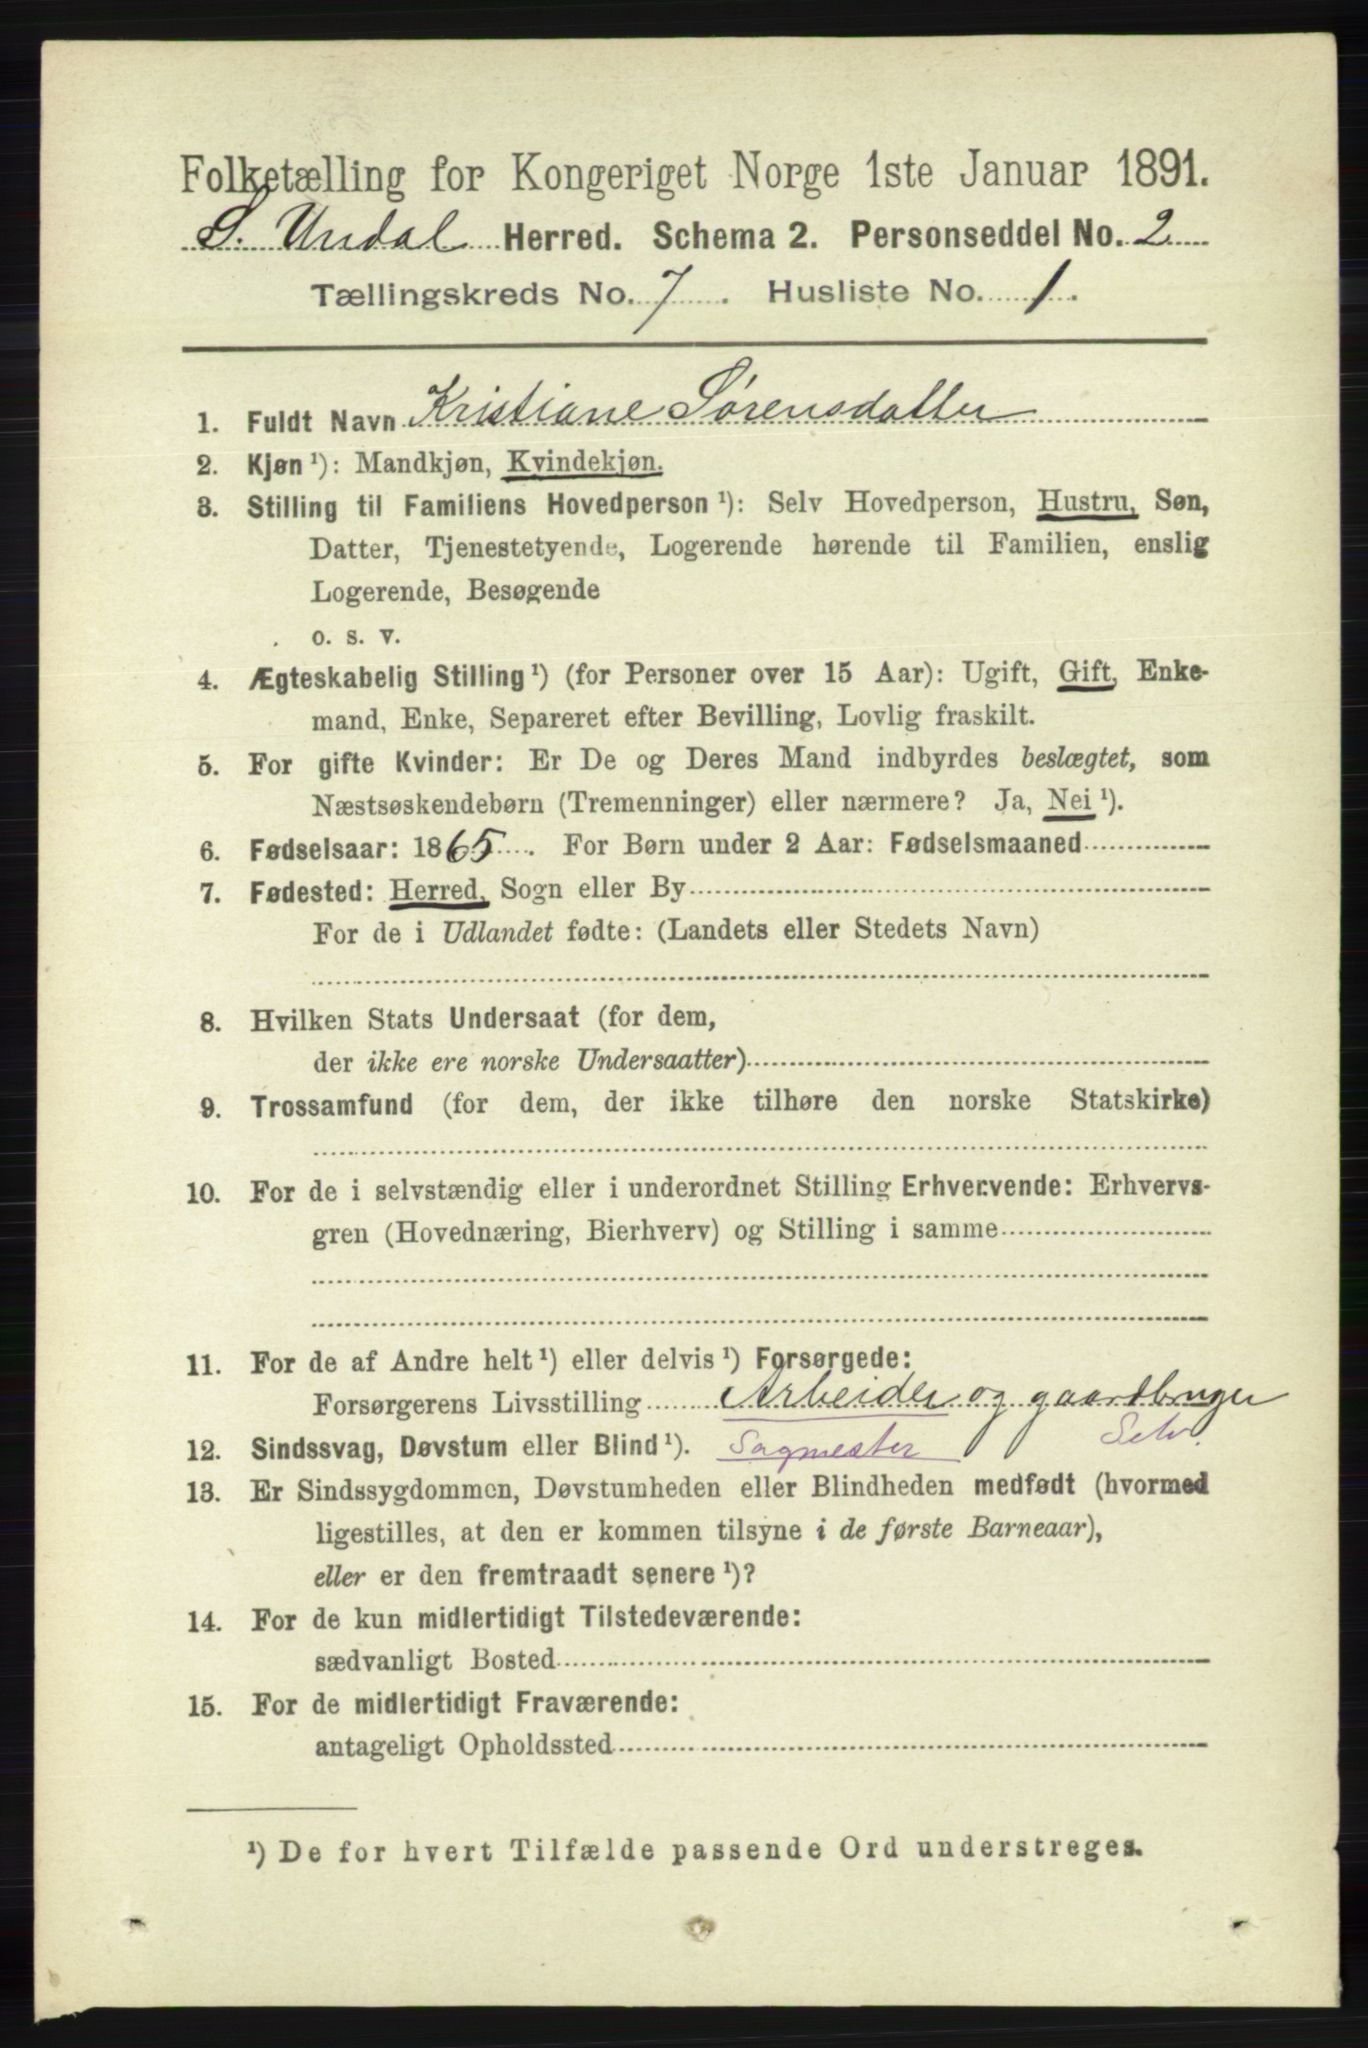 Folketælling for Kongeriget Norge 1ste Januar 1891.
S. Undal Herred. Schema 2. Personseddel No. 2
Tællingskreds No. 7. Husliste No. 1.
1. Fuldt Navn Kristiane Sørensdatter
2. Kjøn ¹): Mandkjøn, Kvindekjøn.
3. Stilling til Familiens Hovedperson ¹): Selv Hovedperson, Hustru, Søn,
Datter, Tjenestetyende, Logerende hørende til Familien, enslig
Logerende, Besøgende
o. s. v.
4. Ægteskabelig Stilling ¹) (for Personer over 15 Aar): Ugift, Gift, Enke-
mand, Enke, Separeret efter Bevilling, Lovlig fraskilt.
5. For gifte Kvinder: Er De og Deres Mand indbyrdes beslægtet, som
Næstsøskendebørn (Tremenninger) eller nærmere? Ja, Nei ¹).
6. Fødselsaar: 1865. For Børn under 2 Aar: Fødselsmaaned
7. Fødested: Herred, Sogn eller By
For de i Udlandet fødte: (Landets eller Stedets Navn)
8. Hvilken Stats Undersaat (for dem,
der ikke ere norske Undersaatter)
9. Trossamfund (for dem, der ikke tilhøre den norske Statskirke)
10. For de i selvstændig eller i underordnet Stilling Erhvervende: Erhvervs-
gren (Hovednæring, Bierhverv) og Stilling i samme
11. For de af Andre helt ¹) eller delvis ¹) Forsørgede:
Forsørgerens Livsstilling Arbeider og gaardbruger
12. Sindssvag, Døvstum eller Blind ¹). Sagmester Selv.
13. Er Sindssygdommen, Døvstumheden eller Blindheden medfødt (hvormed
ligestilles, at den er kommen tilsyne i de første Barneaar),
eller er den fremtraadt senere ¹)?
14. For de kun midlertidigt Tilstedeværende:
sædvanligt Bosted
15. For de midlertidigt Fraværende:
antageligt Opholdssted
¹) De for hvert Tilfælde passende Ord understreges.